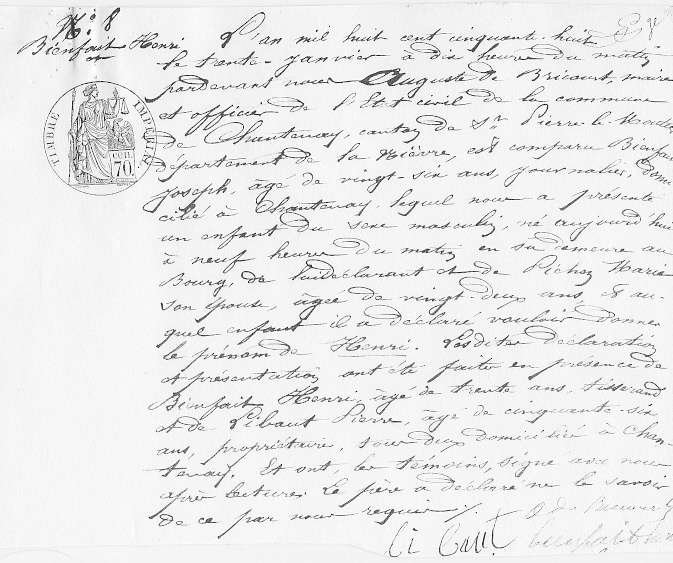 No. 8
Bienfait Henri
L'an mil huit cent cinquante-huit
le trente janvier à dix heures du matin
pardevant nous Auguste de Bricourt, maire
et officier de l'Etat civil de la commune
TIMBRE IMPERIAL
CUIL
70.
de Chantenay, canton de St. Pierre-le-Moutier
département de la Nièvre, est comparu Bienfait
Joseph, âgé de vingt-six ans, journalier, domi
cilié à Chantenay, lequel nous a présenté
un enfant du sexe masculin, né aujourd'hui
à neuf heures du matin en sa demeure au
Bourg, de lui déclarant et de Pichon Marie
son épouse, agée de vingt-deux ans, et au-
quel enfant il a déclaré vouloir donner
le prénom de Henri. Lesdites déclaration
et présentation ont été faites en présence de
Bienfait Henri, âgé de trente ans, tisserand
et de Libaut Pierre, âgé de cinquante-six
ans, propriétaire, tous deux domiciliés à Chan-
tenay. Et ont, les témoins, signé avec nous
après lecture. Le père a déclaré ne le savoir
de ce par nous requis ./.